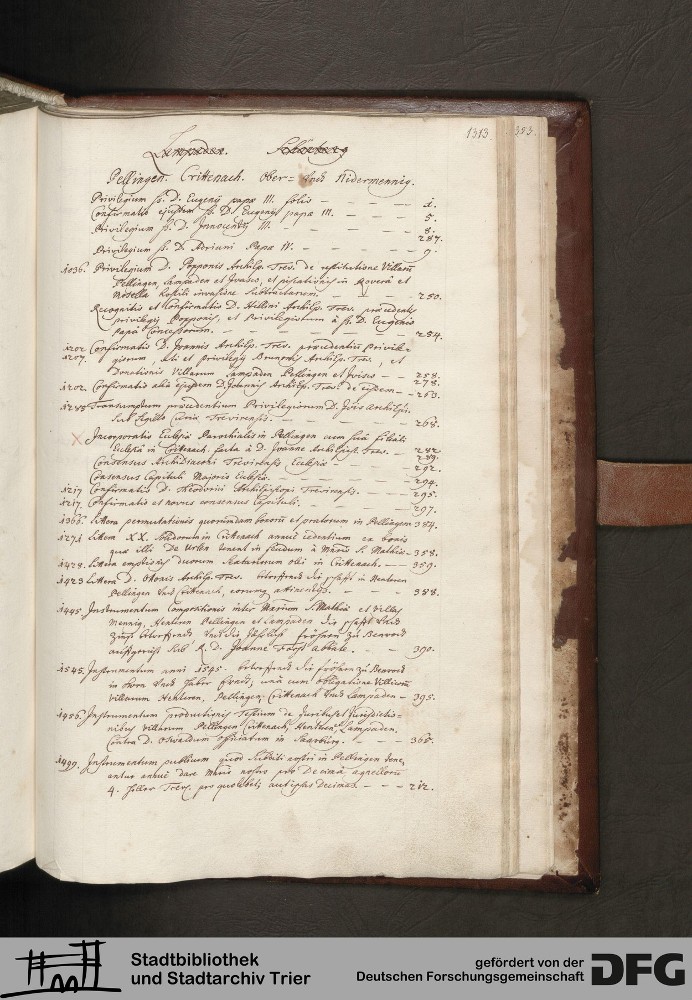 1313. 353.
Lampaden.
Pellingen. Crittenach. Ober= und Nidermennig.
Privilegium s. D. Eugenÿ papæ III. folio - 1.
Confirmatio ejusdem s. D. Eugenÿ papæ III. - 5.
Privilegium s. D. Innocentÿ III. - 8.
287.
Privilegium s. D. Adriani Papæ IV. - 9.
1036. Privilegium D. Popponis Archiep. Trev. de restitutione Villarum
Pellingen, Lampaden et Fraises, et piscationis in Rovera et
Mosella hostili invasione subtractarum. - 250.
Recognitio et Confirmatio D. Hillini Archiep. Trev. præcedentis
privilegÿ Popponis, et Privilegiorum à s. D. Eugenio
Papa Concessorum. - 254.
1202 Confirmatio D. Joannis Archiep. Trev. præcedentium Privile-
1207. giorum, uti et privilegÿ Brunonis Archiep. Trev. et
Donationis Villarum Lampaden Pellingen et - 258.
278.
1202. Confirmatio alia ejusdem D. Joannis Archiep. Trev. de eisdem - 263.
Transumptum præcedentium Privilegiorum D. Archiepi.
sub sigillo Curiæ Trevirensis. - 268.
Incorporatio Ecclesiæ Parochialis in Pellingen cum sua filiali
Ecclesia in Crittenach facta à D. Joanne Archiepisc. Trev. - 282
289.
Consensus Archidiaconi Trevirensis Ecclesiæ - 292.
Consensus Capituli Majoris Ecclesiæ. - 294.
1217 Confirmatio D. Theodorici Archiepiscopi Trevirensis. - 295.
1217. Confirmatio et novus consensus Capituli. - 297.
1366. Littera permutationis quorundam bonorum et pratorum in Pellingen 384.
1271 Littera XX. Solidorum in Crittenach annuè cedentium ex bonis
quæ illi De Urlen tenent in feudum à Monrio S. Mathiæ - 358.
1428. Littera emptionis duorum Sextariorum olei in Crittenach. - 359.
1423 Littera D. Ottonis Archiep. Trev. betreffend die in Hentern
Pellingen und Crittenach, eorumque attinentiis. - 388.
1445. Instrumentum Compositionis inter Monrium S. Mathiæ et Villas
Mennig, Hentern Pellingen et Lampaden die und
Zins betreffend und die Jährlich fröhnen zu Benrod
sub R. D. Joanne Forst abbate. - 390.
1545. Instrumentum anni 1545. betreffend die fröhnen zu Benrod
in Korn und Haber, una cum obligatione Villicorum
Villarum Hentern, Pellingen, Crittenach und Lampaden - 395.
1456. Instrumentum productionis Testium de Juribus et Jurisdictio-
nibus villarum Pellingen Crittenach, Hentern, Lampaden,
Contra D. Oswaldum officiatum in Saarburg. - 365.
1499. Instrumentum publicum quod subditi nostri in Pellingen tene-
antur annuè dare Monrio nostro pro Decima agnellorum
4. Trev. pro quolibet, aut ipsas Decimas. - 212.
Stadtbibliothek
und Stadtarchiv Trier
gefördert von der
Deutschen Forschungsgemeinschaft
DFG